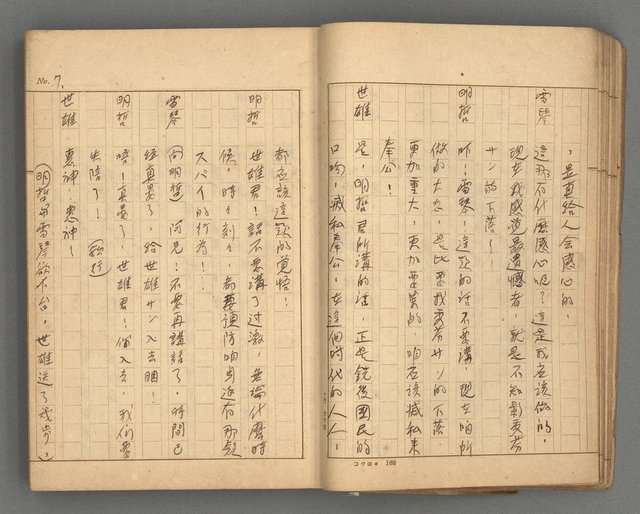 ，是真給人會感心的。
雪琴　這那有什麼感心呢？這是我应該做的。
現在我感覺最遺憾者，就是不知影愛芬
サン的下落！
明哲　吓！雪琴！這款的話不要講，現在咱所
做的大志，是比要找愛芬サン的下落
更加重大，更加要緊的，咱应該滅私來
奉公！
世雄　是，明哲君所講的話，正是銃後國民的
口吻，滅私奉公！在這個時代的人人，
コクヨ 168
No. 7.
都应該這款的覚悟！
明哲　世雄君！話不要講了过激，無論什麼時
候，時々刻々，都要預防咱身边有那款
スパイ的行為！
雪琴　（向明哲）阿兄！不要再講話了，時間已
經真晏了，給世雄サン入去睏！
明哲　唔！真晏了，世雄君！你入去，我們要
失陪了！（欲行）
世雄　惠神！惠神！
（明哲和雪琴欲下台，世雄送了幾步，）